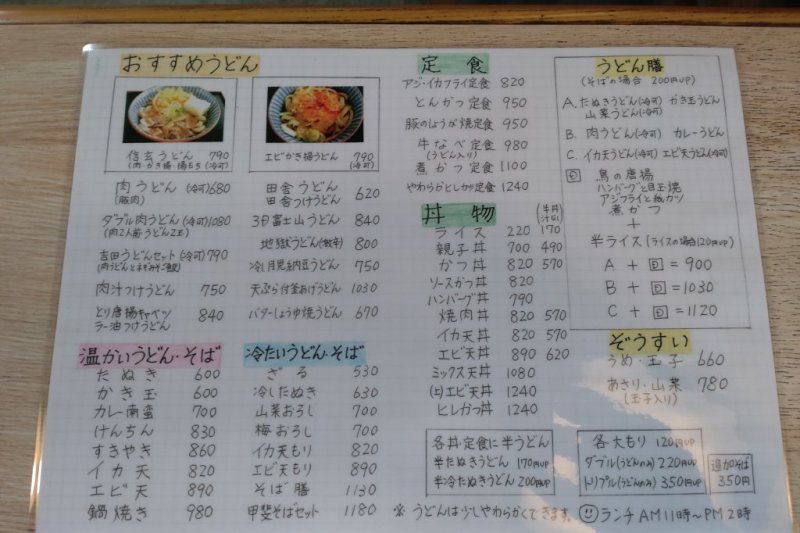 おすすめうどん
信玄うどん 790
(肉・かき揚・揚もち)(冷可)
エビかき揚うどん 790
(冷可)
肉うどん (冷可) 680
(豚肉)
ダブル肉うどん (冷可) 1080
(肉2人前 うどん2玉)
吉田うどんセット (冷可) 790
肉汁つけうどん 750
とり唐揚キャベツ
ラー油つけうどん 840
田舎うどん
田舎つけうどん 620
3日富士山うどん 840
地獄うどん(激辛) 800
冷し月見納豆うどん 750
天ぷら付釜あげうどん 1030
バターしょうゆ焼うどん 670
温かいうどん・そば
たぬき 600
かき玉 600
カレー南蛮 700
けんちん 830
すきやき 860
イカ天 820
エビ天 890
鍋焼き 980
冷たいうどん・そば
ざる 530
冷したぬき 630
山菜おろし 700
梅おろし 700
イカ天もり 820
エビ天もり 890
そば膳 1130
甲斐そばセット 1180
定食
アジ・イカフライ定食 820
とんかつ定食 950
豚のしょうが焼定食 950
牛なべ定食 980
(うどん入り)
煮かつ定食 1100
やわらかヒレかつ定食 1240
丼物 (半丼 汁なし)
ライス 220 170
親子丼 700 490
かつ丼 820 570
ソースかつ丼 820
ハンバーグ丼 790
焼肉丼 820 570
イカ天丼 820 570
エビ天丼 890 620
ミックス天丼 1080
(上)エビ天丼 1240
ヒレかつ丼 1240
各丼・定食に半うどん
半たぬきうどん 170円UP
半冷たぬきうどん 200円UP
うどん膳
(そばの場合 200円UP)
A. たぬきうどん(冷可) かき玉うどん
山菜うどん(冷可)
B. 肉うどん(冷可) カレーうどん
C. イカ天うどん(冷可) エビ天うどん(冷可)
D 鳥の唐揚
ハンバーグと目玉焼
アジフライと紙カツ
煮かつ
+
半ライス (ライスの場合120円UP)
A + D = 900
B + D = 1030
C + D = 1120
ぞうすい
うめ・玉子 660
あさり・山菜 780
(玉子入り)
各大もり 120円UP
ダブル(うどんのみ) 220円UP
トリプル(うどんのみ) 350円UP
追加そば
350円
※ うどんは少しやわらかくできます。 ランチ AM11時~PM2時